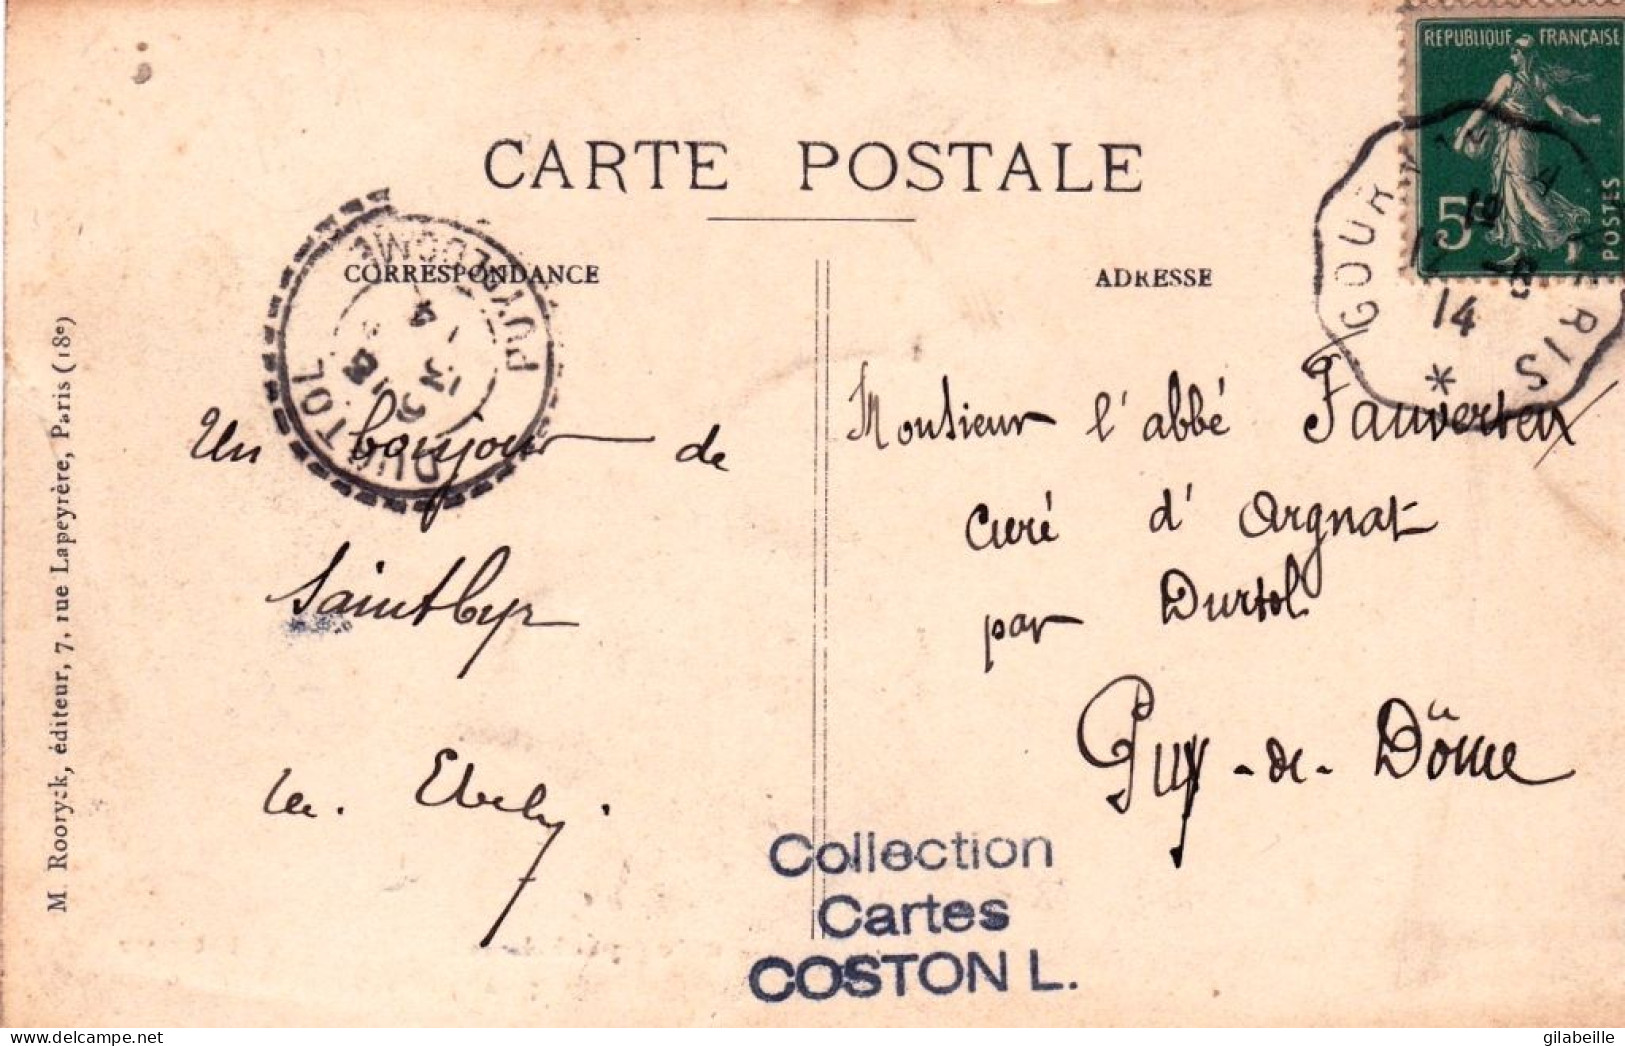 REPUBLIQUE FRANÇAISE
5c
POSTES
CARTE POSTALE
CORRESPONDANCE
ADRESSE
PUY-DE-DOME
DURTOL
GOUR
PARIS
14
*
M. Rooryck, éditeur, 7, rue Lapeyrère, Paris (18e)
Un bonjour de
Saint Cyr
Monsieur l'abbé Fauverteix
Curé d'Argnat
par Durtol
Puy-de-Dôme
Collection
Cartes
COSTON L.
delcampe.net
gilabeille